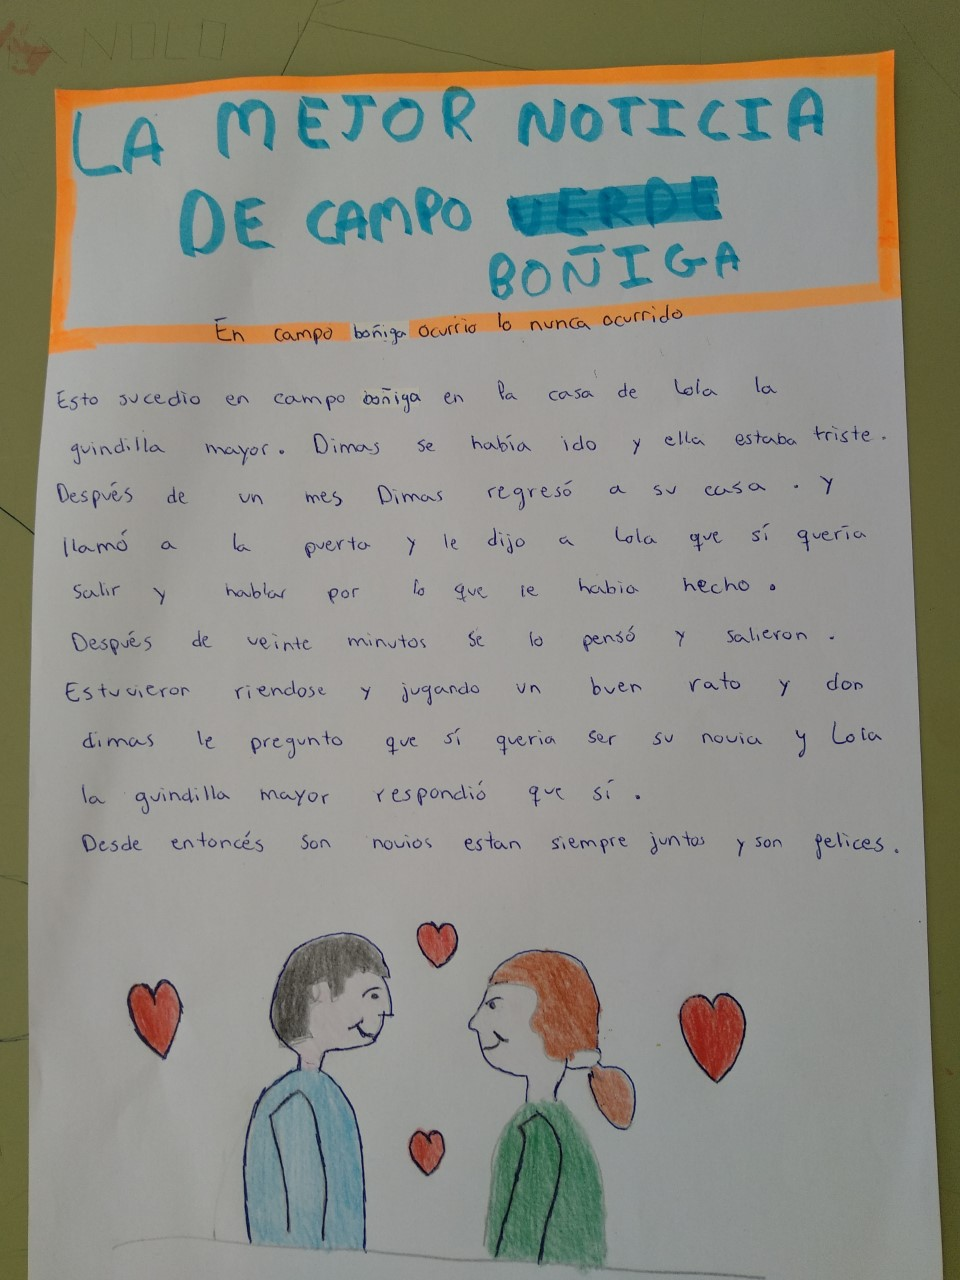 ANOLO
LA MEJOR NOTICIA
DE CAMPO VERDE
BOÑIGA
En campo boñiga ocurrio lo nunca ocurrido
Esto sucedio en campo boñiga en la casa de Lola la
guindilla mayor. Dimas se había ido y ella estaba triste.
Después de un mes Dimas regresó a su casa. y
llamó a la puerta y le dijo a Lola que sí queria
salir y hablar por lo que le habia hecho.
Después de veinte minutos se lo pensó y salieron.
Estuvieron riendose y jugando un buen rato y don
dimas le pregunto que sí queria ser su novia y Lola
la guindilla mayor respondió que sí.
Desde entoncés son novios estan siempre juntos y son felices.